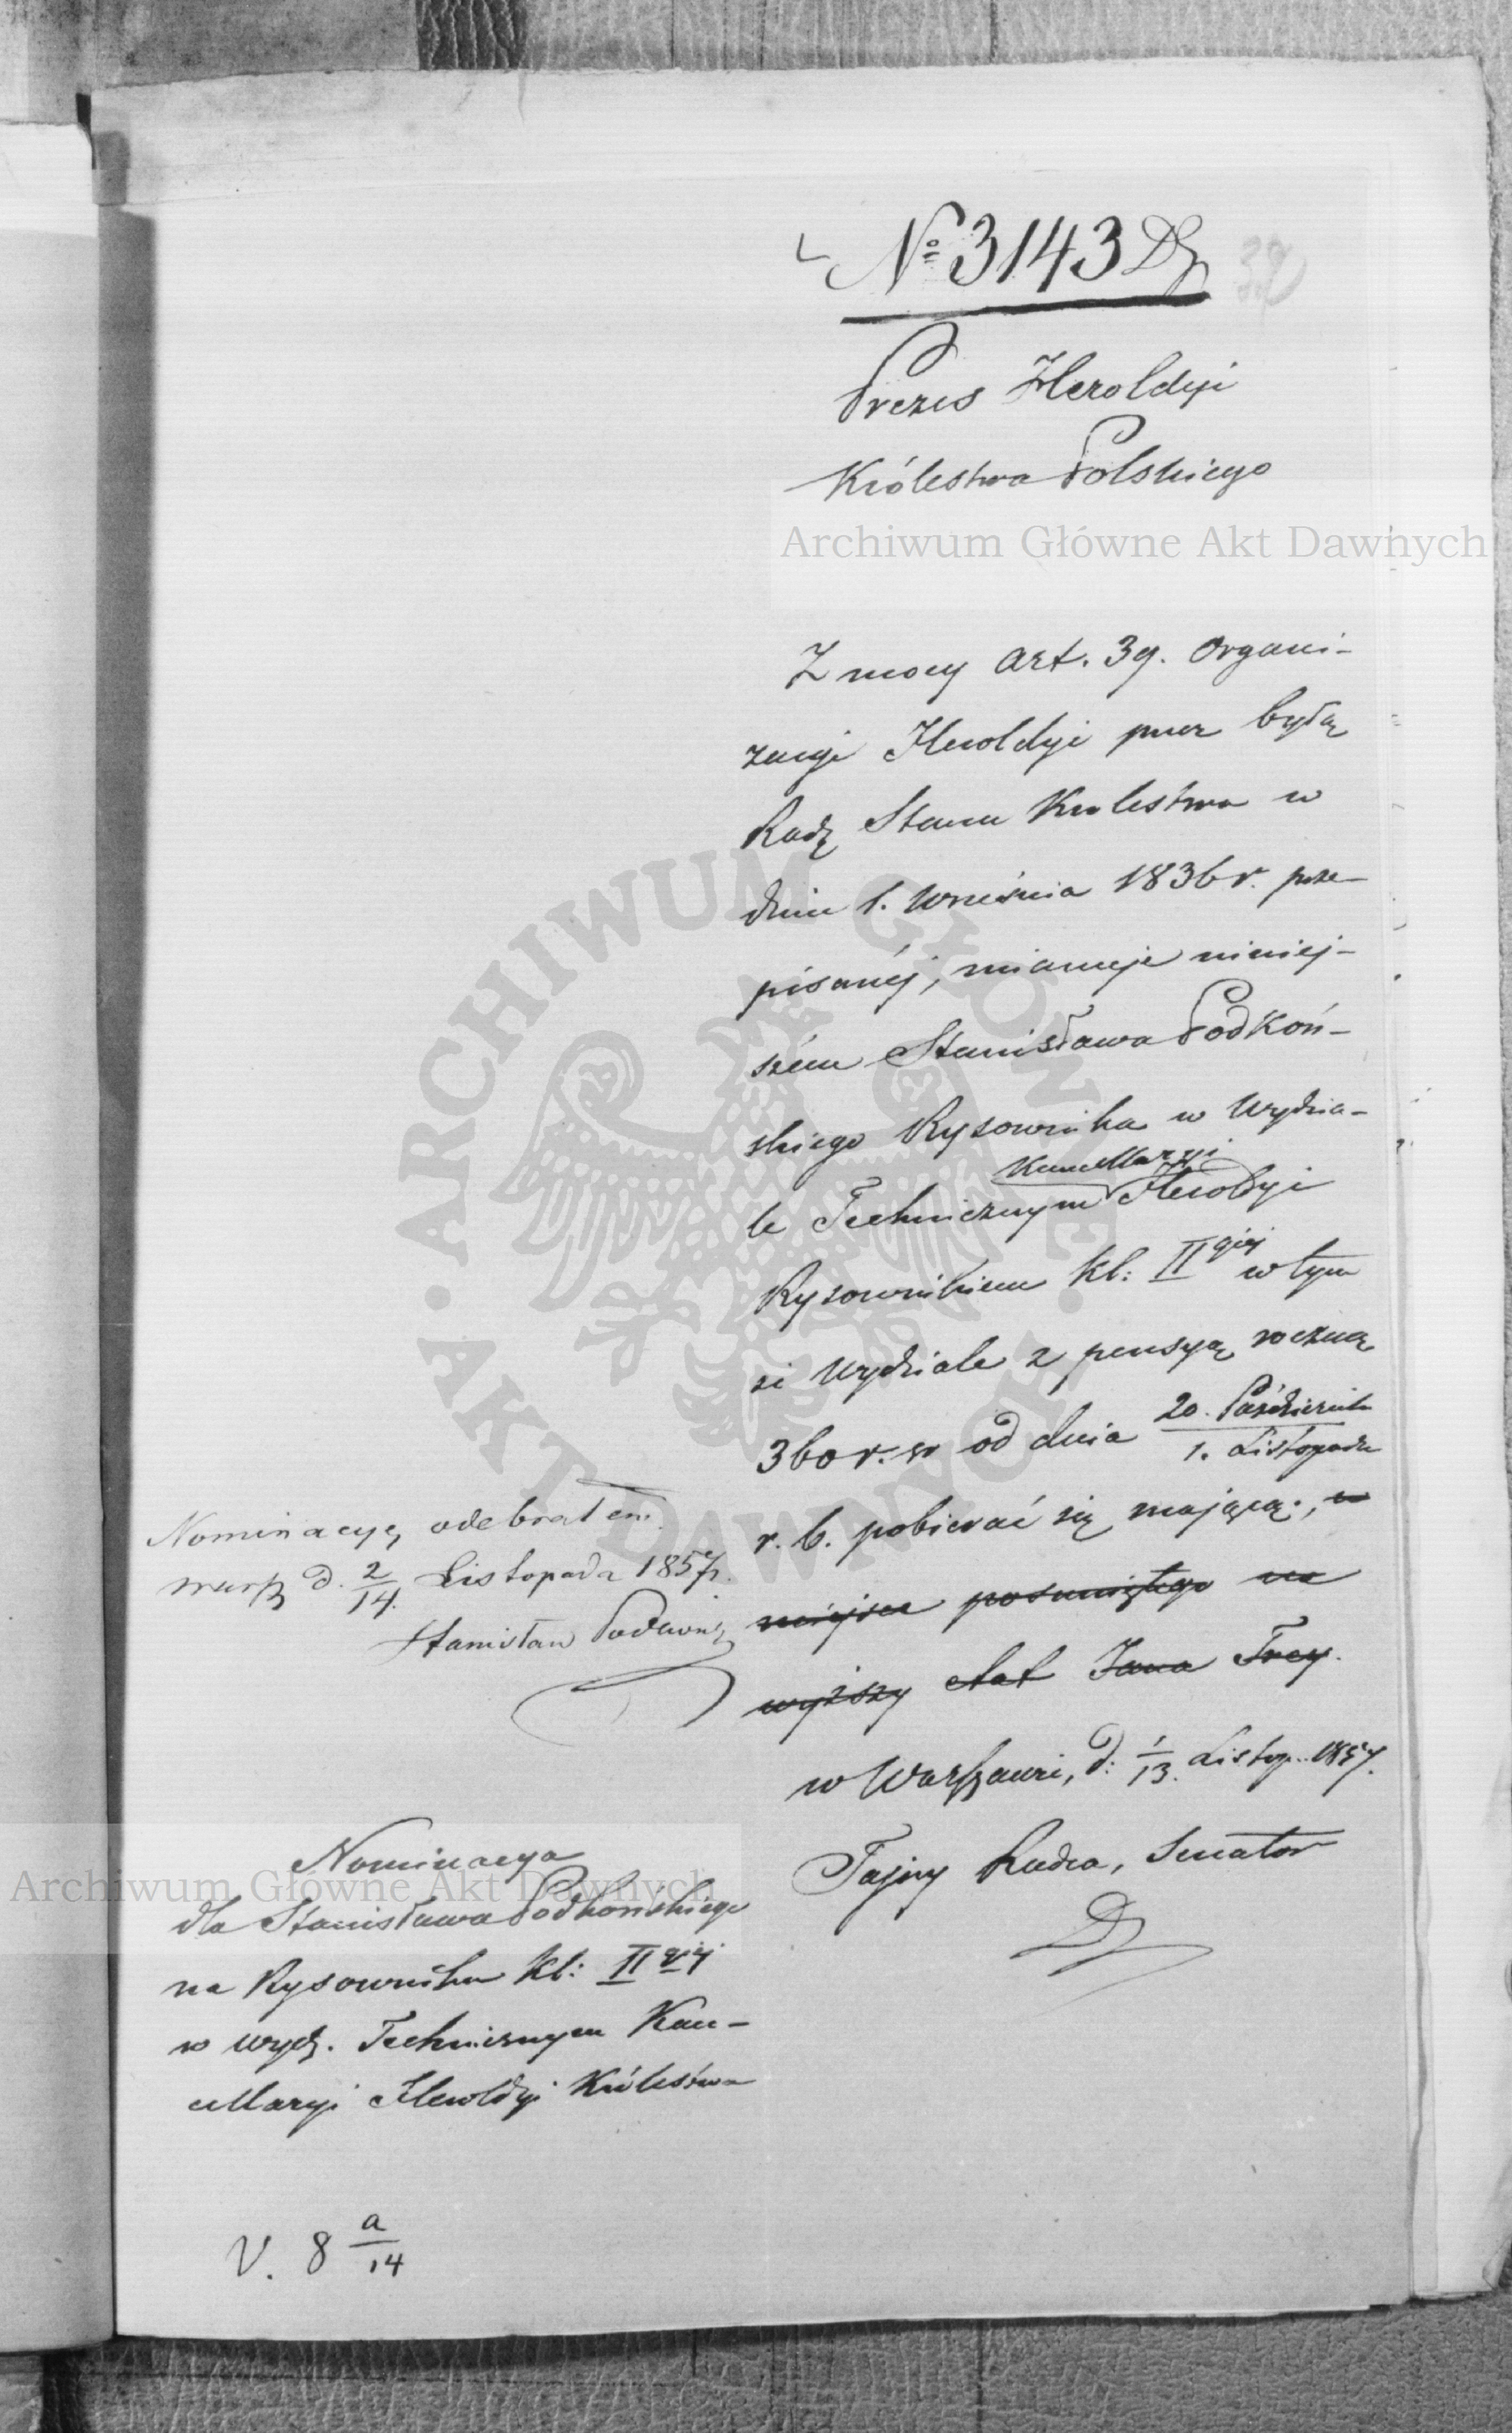 № 3143 Dz
39
Prezes Heroldyi
Królestwa Polskiego
Archiwum Główne Akt Dawnych
Z mocy Art. 39. Organi-
zacyi Heroldyi przez byłą
Radę Stanu Królestwa w
dniu 1. Września 1836 r. prze-
pisanéj, mianuje niniej-
szém Stanisława Podkoń-
skiego Rysownika w Wydzia-
Kancellaryi
le Technicznym Heroldyi
Rysownikiem kl: II giéj w tym
że Wydziale z pensyą roczną
360 r. sr od dnia 20. Października / 1. Listopada
r. b. pobierać się mającą, w
miejsce posuniętego na
wyższy etat Jana Frey.
w Warszawie, d: 1/13. Listop. 1857.
Tajny Radca, Senator
Nominacyę odebrałem
Warsz d. 2/14. Listopada 1857 r.
Stanisław Podkoński
Nominacya
dla Stanisława Podkońskiego
na Rysownika kl: II giéj
w Wydz. Technicznym Kan-
cellaryi Heroldyi Królestwa
V. 8 a/14
Archiwum Główne Akt Dawnych
ARCHIWUM GŁÓWNE AKT DAWNYCH